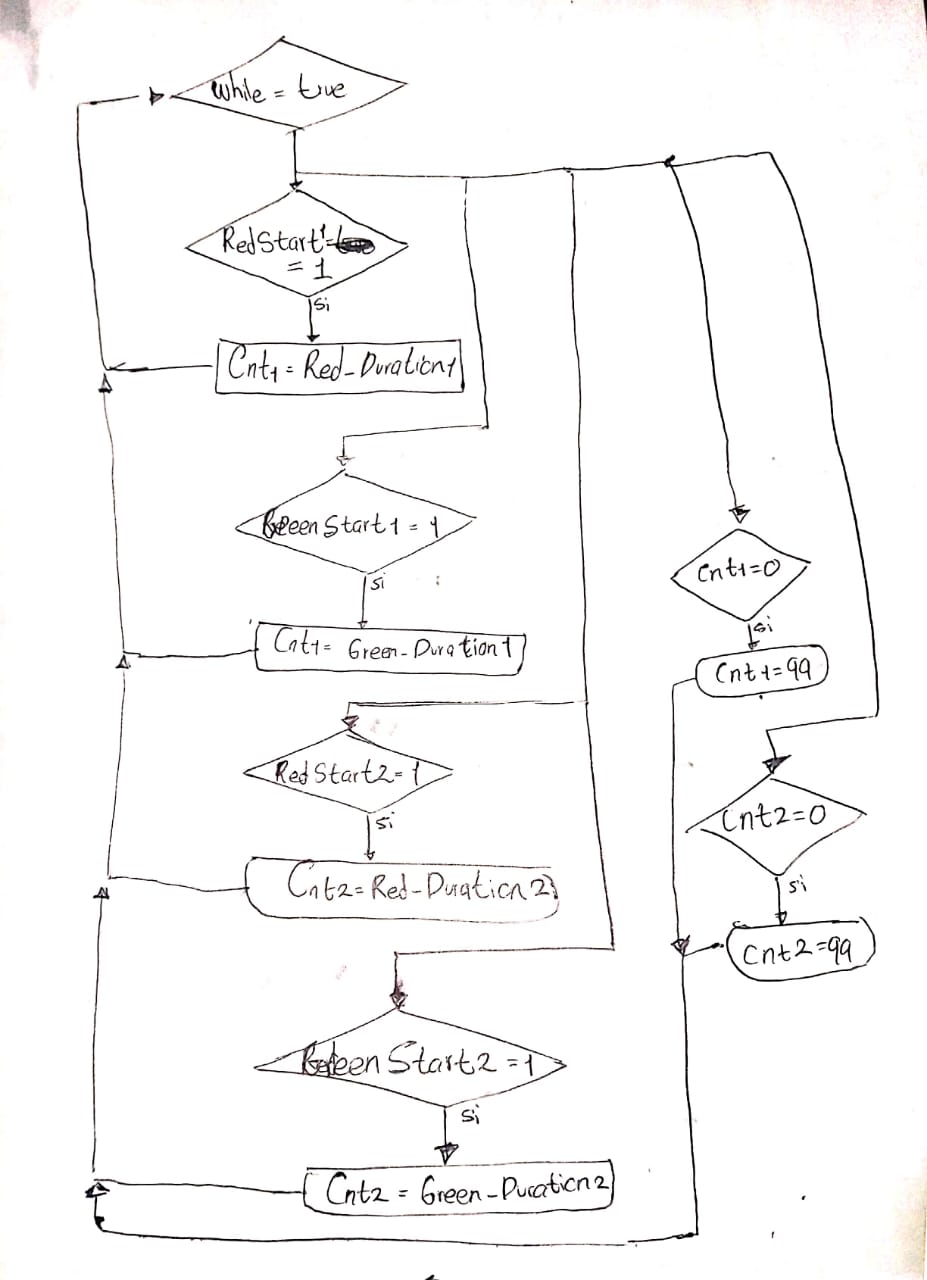 while = true
RedStart1=
= 1
si
Cnt1 = Red-Duration1
Green Start1 = 1
si
Cnt1= Green-Duration1
Red Start2=1
si
Cnt2=Red-Duration2
Green Start2 =1
si
Cnt2 = Green-Duration2
Cnt1=0
si
Cnt1=99
Cnt2=0
si
Cnt2=99